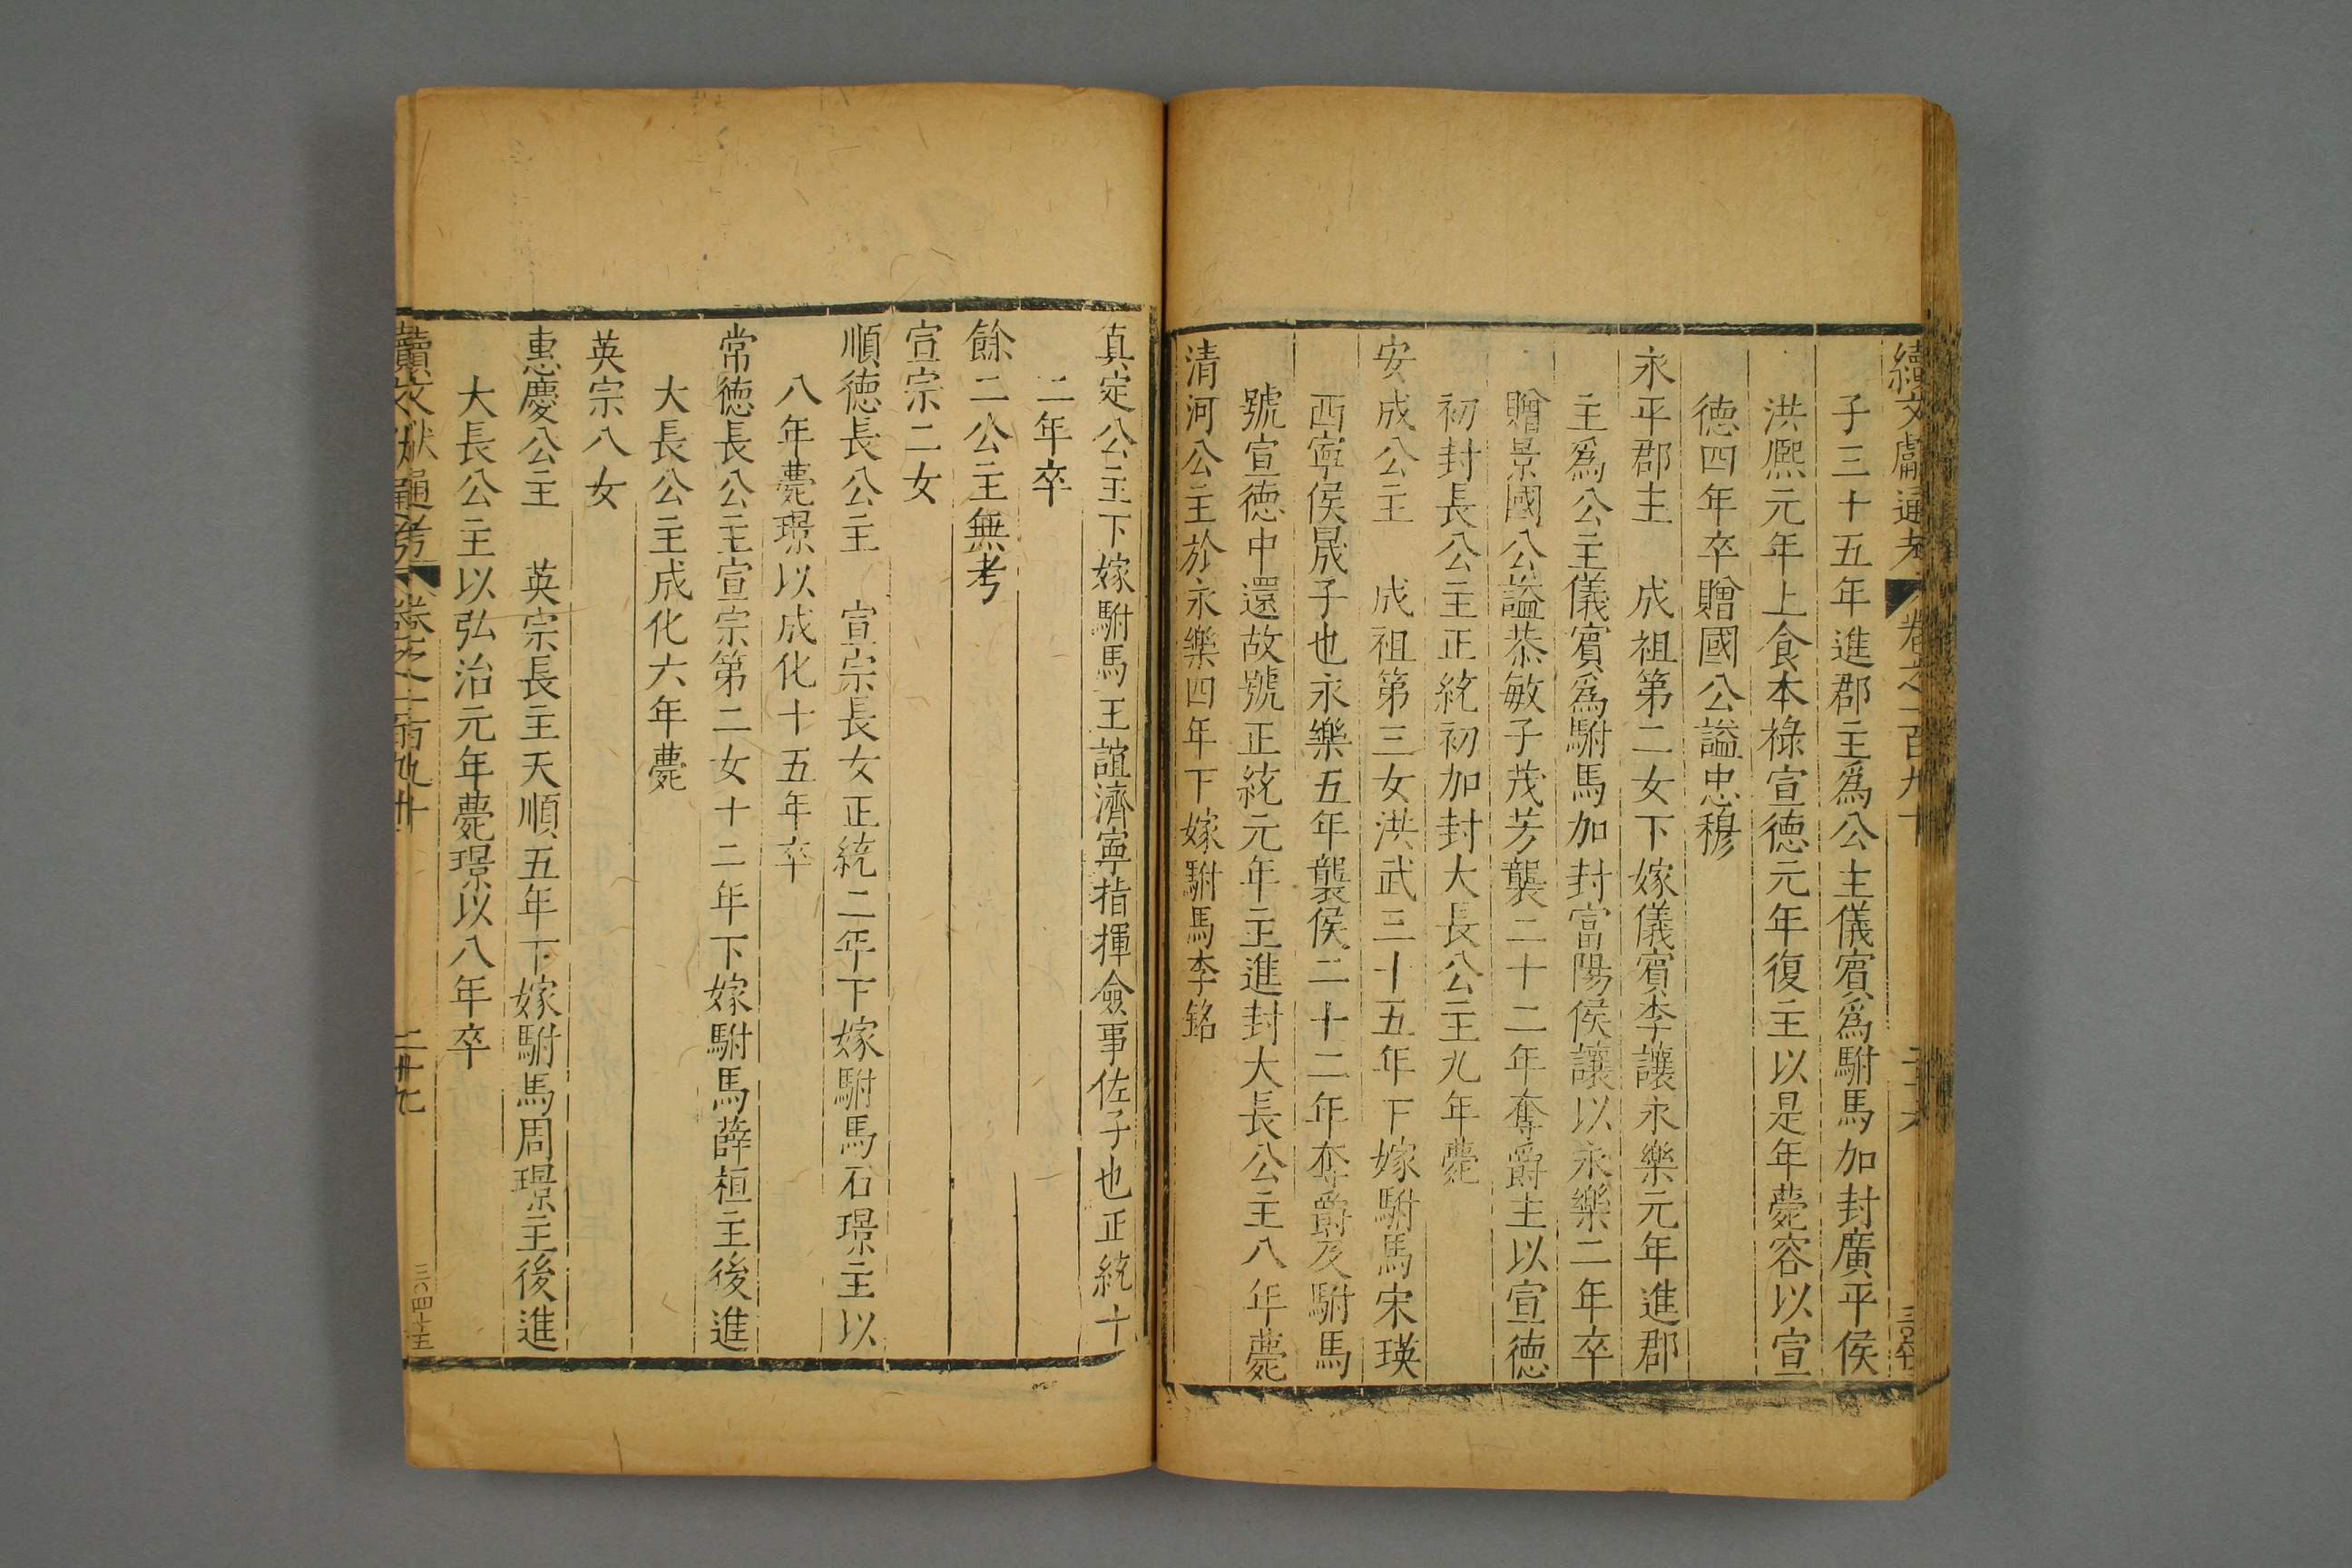 續文獻通考 卷之一百九十
子三十五年進郡主爲公主儀賓爲駙馬加封廣平侯
洪熈元年上食本祿宣徳元年復主以是年薨容以宣
徳四年卒贈國公謚忠穆
永平郡主 成祖第二女下嫁儀賓李讓永樂元年進郡
主爲公主儀賓爲駙馬加封富陽侯讓以永樂二年卒
贈景國公謚恭敏子茂芳襲二十二年奪爵主以宣徳
初封長公主正統初加封大長公主九年薨
安成公主 成祖第三女洪武三十五年下嫁駙馬宋瑛
西寧侯晟子也永樂五年襲侯二十二年奪爵及駙馬
號宣徳中還故號正統元年主進封大長公主八年薨
清河公主於永樂四年下嫁駙馬李銘
真定公主下嫁駙馬王誼濟寧指揮僉事佐子也正統十
二年卒
餘二公主無考
宣宗二女
順徳長公主 宣宗長女正統二年下嫁駙馬石璟主以
八年薨璟以成化十五年卒
常徳長公主宣宗第二女十二年下嫁駙馬薛桓主後進
大長公主成化六年薨
英宗八女
惠慶公主 英宗長主天順五年下嫁駙馬周璟主後進
大長公主以弘治元年薨璟以八年卒
續文獻通考 卷之一百九十 二十九
三〇四十五